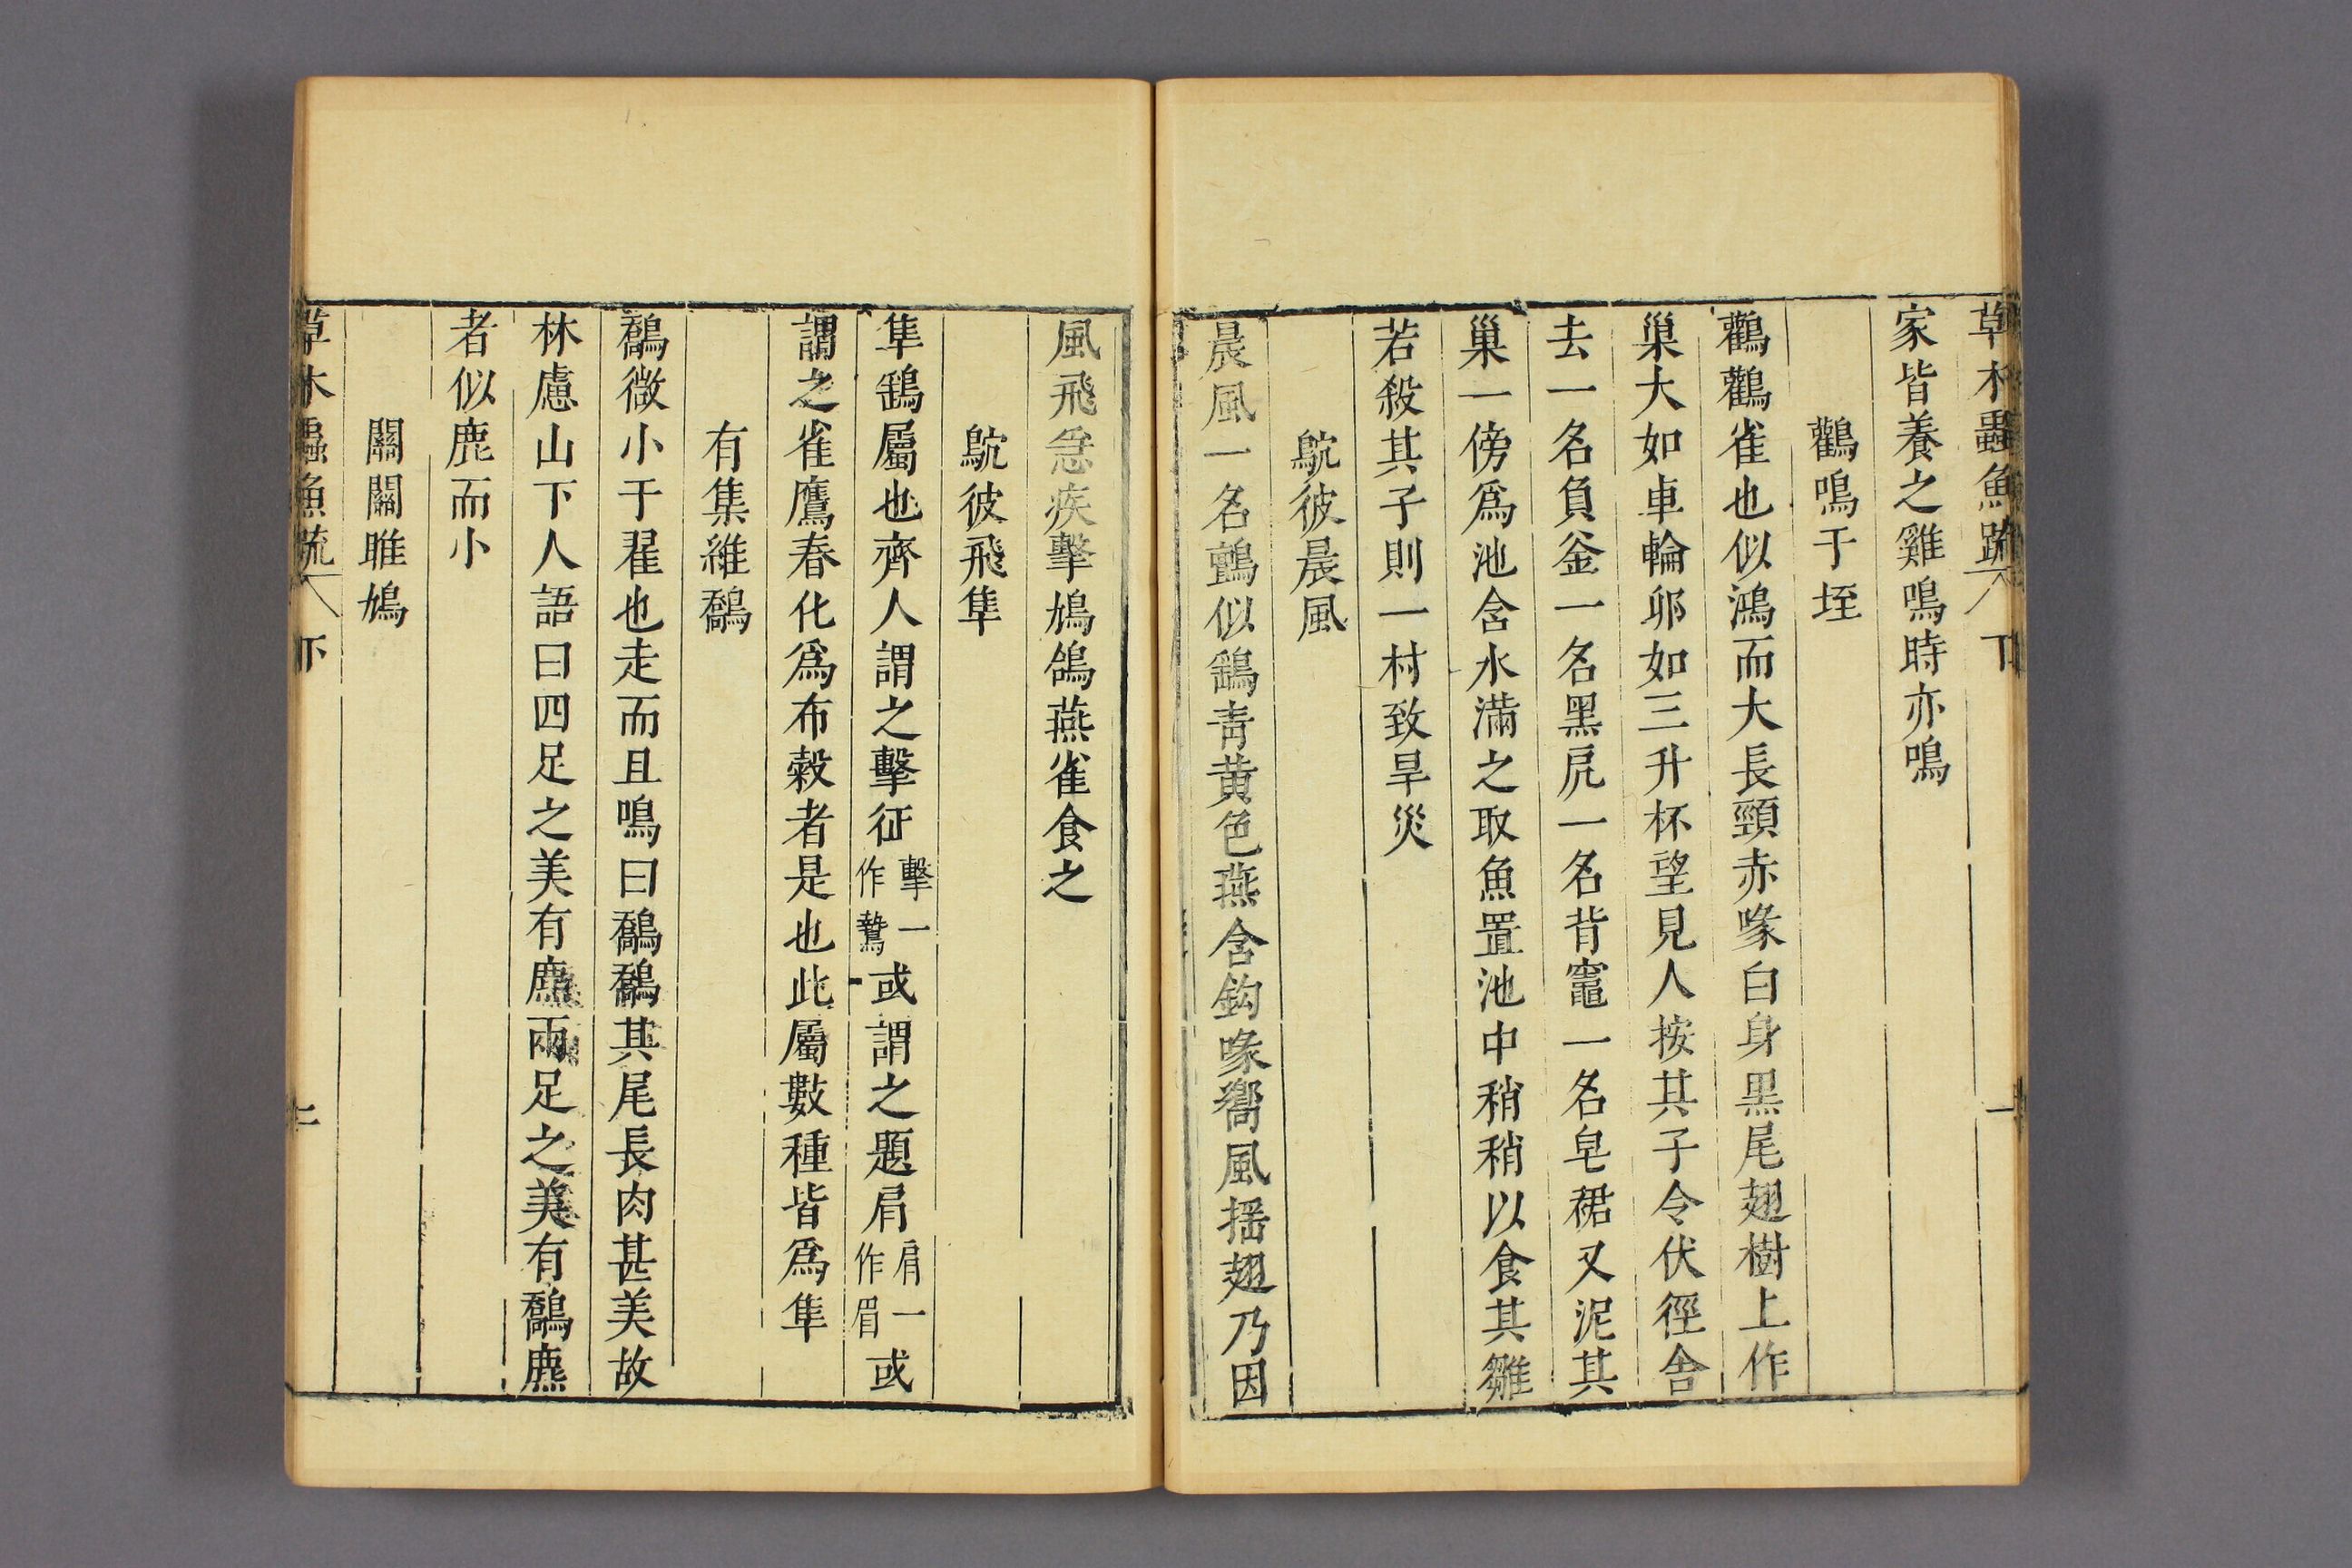 草木蟲魚疏 下 一
家皆養之雞鳴時亦鳴
鸛鳴于垤
鸛鸛雀也似鴻而大長頸赤喙白身黑尾翅樹上作
巢大如車輪卵如三升杯望見人按其子令伏徑舍
去一名負釜一名黑尻一名背竈一名皂裙又泥其
巢一傍爲池含水滿之取魚置池中稍稍以食其雛
若殺其子則一村致旱災
鴥彼晨風
晨風一名鸇似鷂青黃色燕含鈎喙嚮風搖翅乃因
風飛急疾擊鳩鴿燕雀食之
鴥彼飛隼
隼鷂屬也齊人謂之擊征擊一作鷙或謂之題肩肩一作眉或
謂之雀鷹春化爲布穀者是也此屬數種皆爲隼
有集維鷮
鷮微小于翟也走而且鳴曰鷮鷮其尾長肉甚美故
林慮山下人語曰四足之美有麃兩足之美有鷮麃
者似鹿而小
關關雎鳩
草木蟲魚疏 下 二